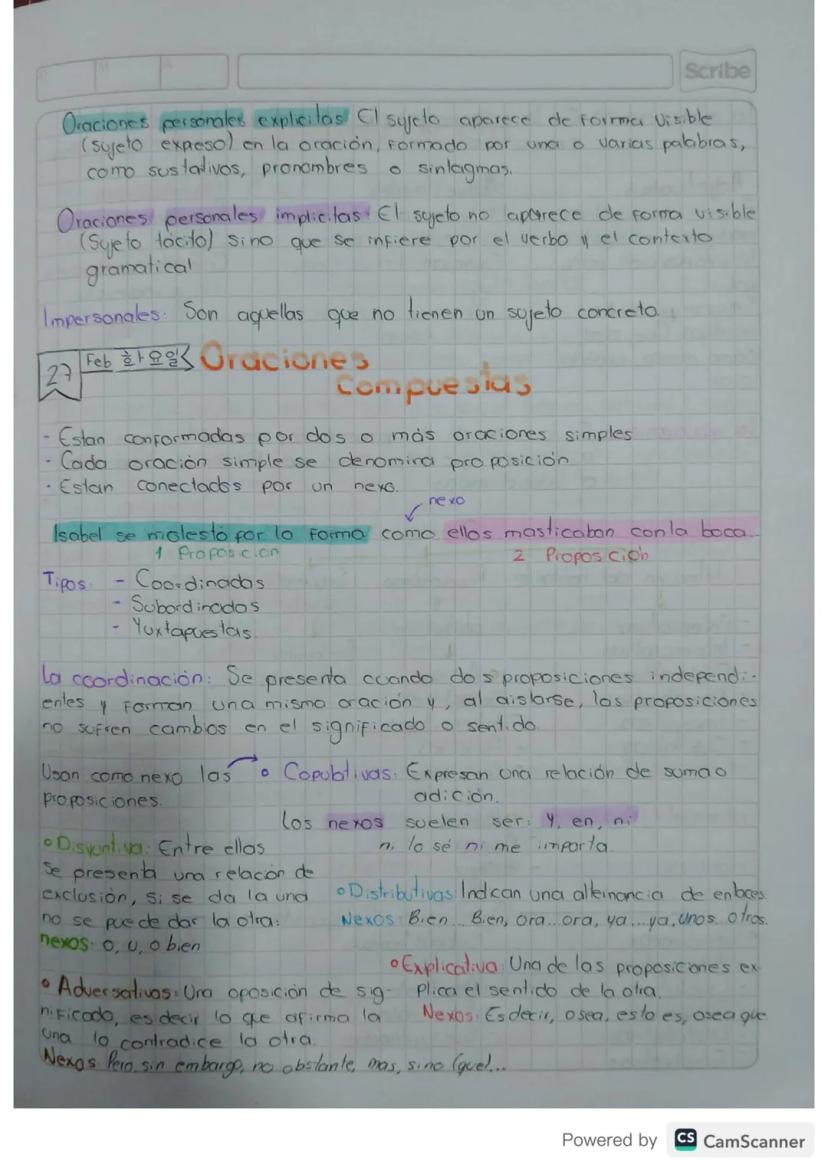 Scribe
Oraciones personales explicitas El sujeto aparece de forma visible
(sujeto expeso) en la oración, formado por una o varias palabras,
como sustativos, pronombres o sintagmas.
Oraciones personales implicitas: El sujeto no aparece de forma visible
(Sujeto tácito) sino que se infiere por el verbo y el contexto
gramatical
Impersonales: Son aquellas que no tienen un sujeto concreto
27 Feb 화요일 Oraciones
Compuestas
- Estan conformadas por dos o más oraciones simples
- Cada oración simple se denomina proposición
- Estan conectados por un nexo.
nexo
Isabel se molestó por la forma como ellos masticaban con la boca
1 Proposición 2 Proposición
Tipos: - Coordinadas
- Subordinadas
- Yuxtapuestas.
La coordinación: Se presenta cuando dos proposiciones independi-
entes y forman una misma oración y, al aislarse, las proposiciones
no sufren cambios en el significado o sentido
Usan como nexo las proposiciones.
• Copulativas: Expresan una relación de suma o
adición.
Los nexos suelen ser: y, en, ni
ni lo sé ni me importa.
• Disyuntiva: Entre ellas
se presenta una relación de
exclusión, si se da la una
no se puede dar la otra:
nexos: o, u, o bien
• Distributivas: Indican una alternancia de enlaces
Nexos: Bien... Bien, ora...ora, ya...ya, unos..otros.
• Explicativa: Una de las proposiciones ex-
plica el sentido de la otra.
Nexos: Es decir, o sea, esto es, osea que
• Adversativas: Una oposición de sig-
nificado, es decir lo que afirma la
una lo contradice la otra
Nexos: Pero, sin embargo, no obstante, mas, sino (que)...
Powered by CS CamScanner